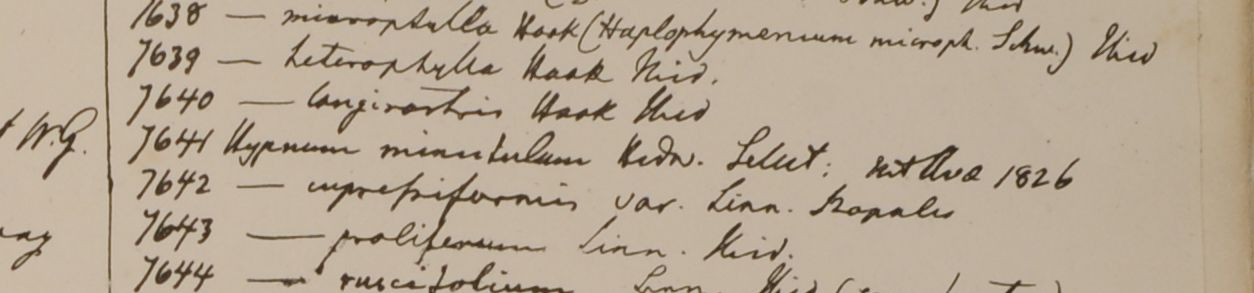 7638 — microphylla Hook (Haplophymenium microph. Schw.) Ibid
t W.G.
7639 — heterophylla Hook Ibid.
7640 — longirostris Hook Ibid
7641 Hypnum minutulum Hedw. Select: 1826
7642 — cupressiformis var. Linn.
7643 — proliferum Linn. Ibid.
7644 — ruscifolium Linn. Ibid